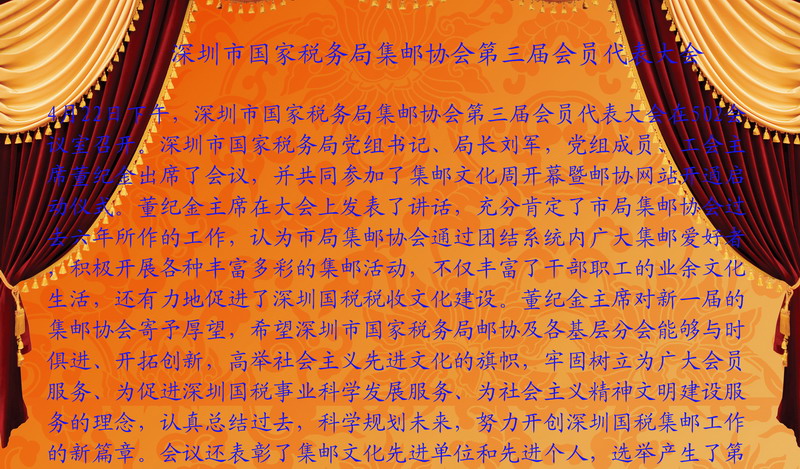 深圳市国家税务局集邮协会第三届会员代表大会
4月22日下午，深圳市国家税务局集邮协会第三届会员代表大会在502会
议室召开，深圳市国家税务局党组书记、局长刘军，党组成员、工会主
席董纪金出席了会议，并共同参加了集邮文化周开幕暨邮协网站开通启
动仪式。董纪金主席在大会上发表了讲话，充分肯定了市局集邮协会过
去六年所作的工作，认为市局集邮协会通过团结系统内广大集邮爱好者
，积极开展各种丰富多彩的集邮活动，不仅丰富了干部职工的业余文化
生活，还有力地促进了深圳国税税收文化建设。董纪金主席对新一届的
集邮协会寄予厚望，希望深圳市国家税务局邮协及各基层分会能够与时
俱进、开拓创新，高举社会主义先进文化的旗帜，牢固树立为广大会员
服务、为促进深圳国税事业科学发展服务、为社会主义精神文明建设服
务的理念，认真总结过去，科学规划未来，努力开创深圳国税集邮工作
的新篇章。会议还表彰了集邮文化先进单位和先进个人，选举产生了第